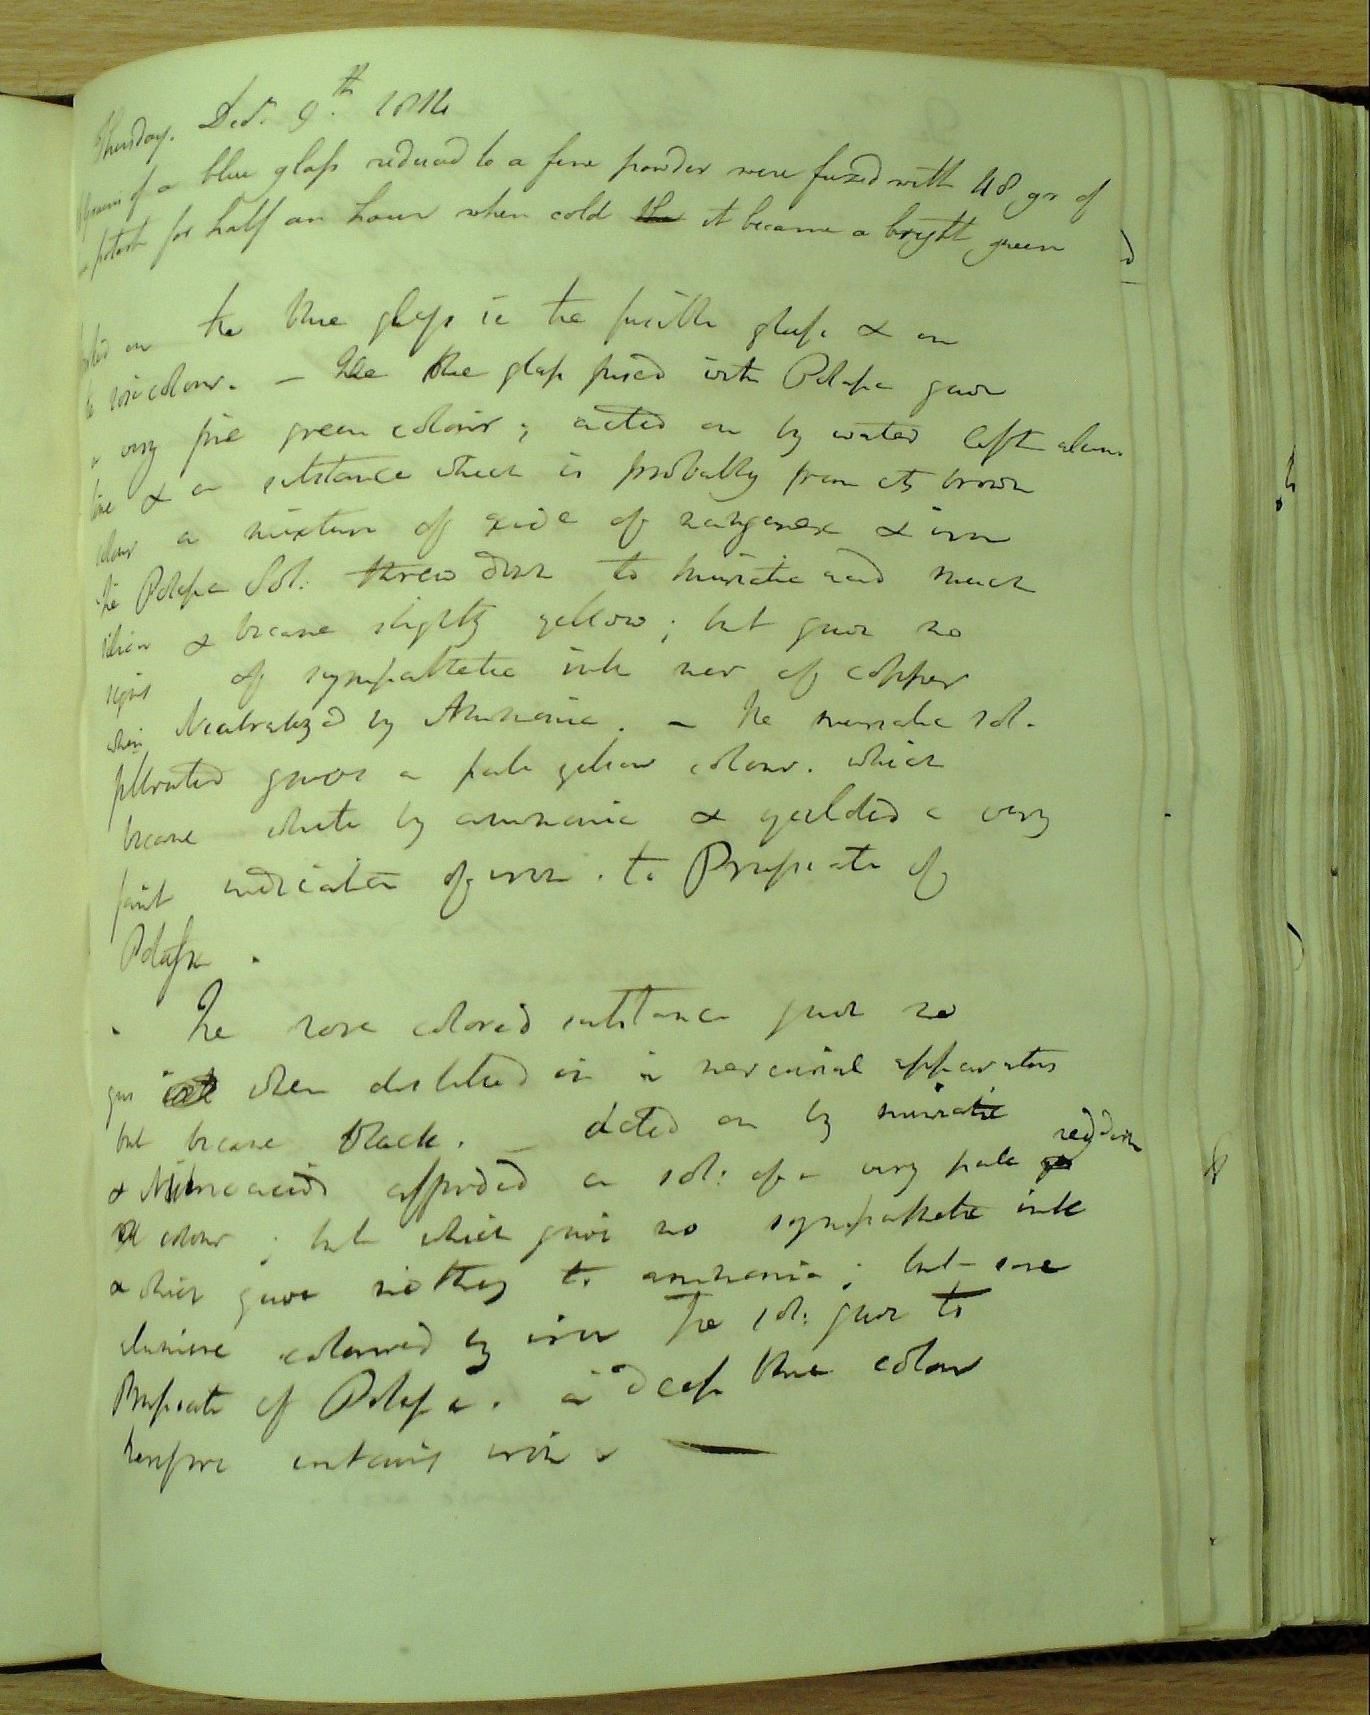 Thursday. Decr. 9th 1814
of a blue glass reduced to a fine powder were fuzed with 48 grs of
potash for half an hour when cold the it became a bright green
on the blue glass ie the fusible glass & on
rose colour. — The blue glass fused with Potassa gave
a very fine green colour; acted on by water left alum
ine & a substance which is probably from its brown
colour a mixture of oxide of manganese & iron
The Potassa Sol: threw down to muriatic acid much
silica & became slightly yellow; but gave no
signs of sympathetic ink nor of copper
when Neutralized by Ammonia. — The muriatic sol.
filtrated gave a pale yellow colour. which
became white by ammonia & yeilded a very
faint indication of iron. to Prussiate of
Potassa.
The rose colored substance gave no
gas when distilled in a mercurial apparatus
but became black. — acted on by muriatic
& Nitric acids afforded a sol: of a very pale reddish
colour; but which gave no sympathetic ink
& which gave nothing to ammonia; but some
alumine coloured by iron The sol: gave to
Prussiate of Potassa. a deep blue colour
therefore contains iron